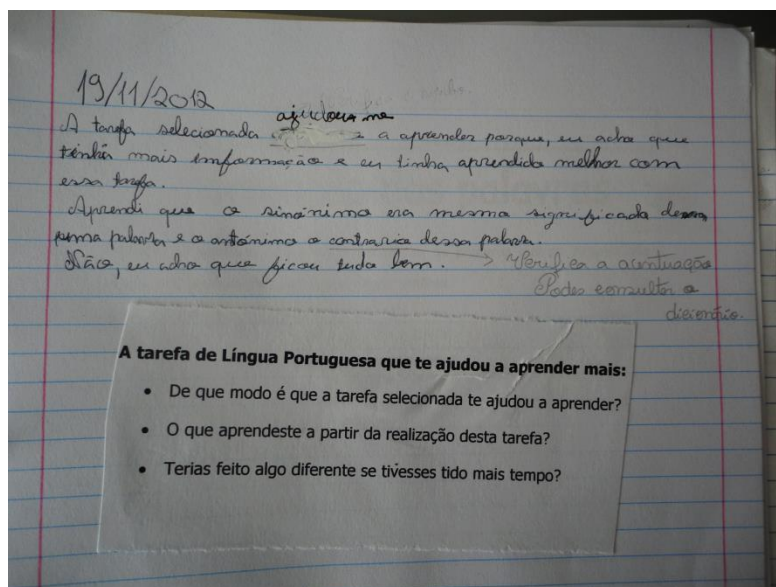 19/11/2012
ajudou me
A tarefa selecionada a aprender porque, eu acho que
tinha mais informação e eu tinha aprendido melhor com
essa tarefa.
Aprendi que o sinónimo era mesmo significado
numa palavra e o antónimo o contrario dessa palavra.
Não, eu acho que ficou tudo bem. → Verifica a acentuação
Podes consultar o
dicionário.
A tarefa de Língua Portuguesa que te ajudou a aprender mais:
• De que modo é que a tarefa selecionada te ajudou a aprender?
• O que aprendeste a partir da realização desta tarefa?
• Terias feito algo diferente se tivesses tido mais tempo?